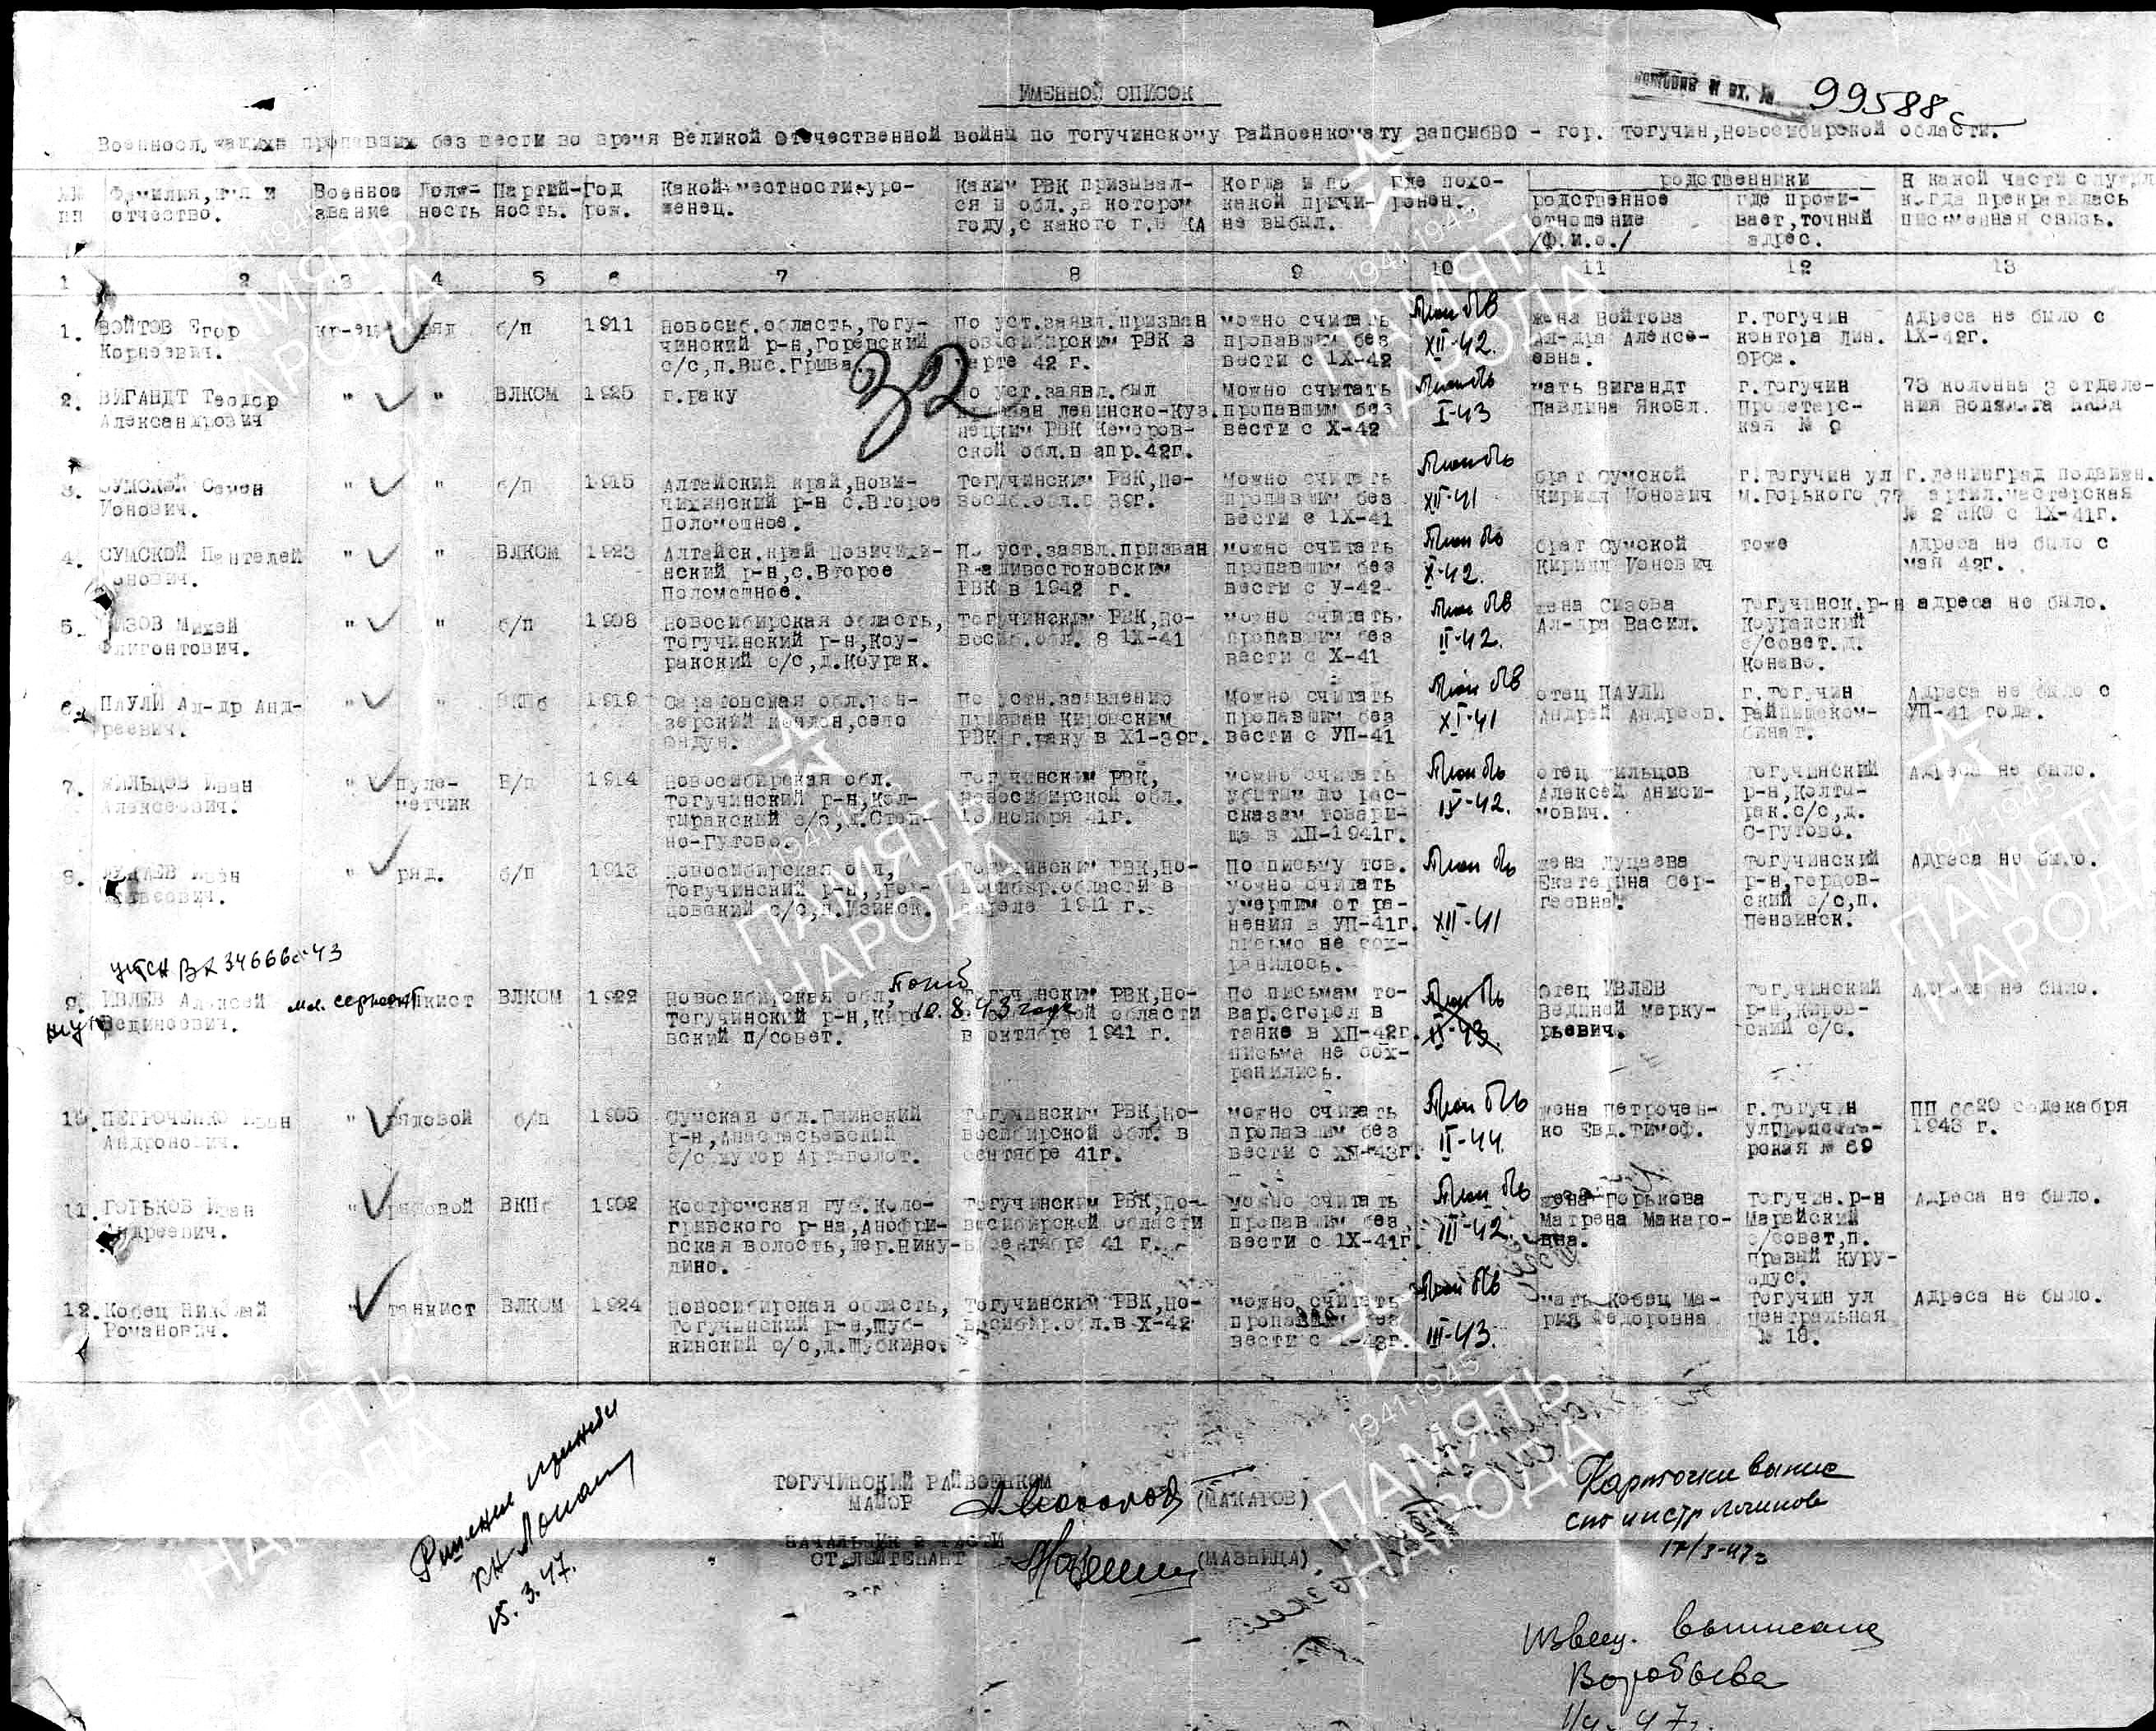 ИМЕННОЙ СПИСОК
вх. №
99588с
Военнослужащих пропавших без вести во время Великой Отечественной войны по Тогучинскому Райвоенкомату ЗапСибВО - гор. Тогучин, Новосибирской области.
Фамилия, имя и отчество.
Военное звание
Долж-ность
Партий-ность.
Год рож.
Какой местности уро-женец.
Каким РВК призывал-ся и обл., в котором году, с какого г. в КА
Когда и по какой причи-не выбыл.
Где похо-ронен.
родственники
родственное отношение /ф.и.о./
где прожи-вает, точный адрес.
В какой части служил когда прекратилась письменная связь.
1 2 3 4 5 6 7 8 9 10 11 12 13
1. ВОЙТОВ Егор Корнеевич.
кр-ец ряд б/п 1911
Новосиб.область, Тогу-чинский р-н, Горевский с/с, п.Выс.Грива.
По уст.заявл.призван Новосибирским РВК в марте 42 г.
можно считать пропавшим без вести с 1Х-42
XII-42.
жена Войтова Ал-дра Алексе-евна.
г.Тогучин контора Лин. ОРСа.
Адреса не было с 1Х-42г.
32
2. ВИГАНДТ Теодор Александрович
" " ВЛКСМ 1925
г.Баку
По уст.заявл.был призван Ленинско-Куз.нецким РВК Кемеров-ской обл.в апр.42г.
Можно считать пропавшим без вести с Х-42
I-43
мать Вигандт Павлина Яковл.
г.Тогучин Пролетарс-кая № 9
73 колонна 3 отделе-ния Волжлага НКВД
3. СУМСКОЙ Семен Ионович.
" " б/п 1915
Алтайский край, Нови-чихинский р-н с.Второе Поломошное.
Тогучинским РВК, Но-восиб.обл.с 39г.
Можно считать пропавшим без вести с 1Х-41
XII-41
брат Сумской Кирилл Ионович
г.Тогучин ул М.Горького 77
г.Ленинград подвижн. артил.мастерская № 2 с 1Х-41г.
4. СУМСКОЙ Пантелей Ионович.
" " ВЛКСМ 1923
Алтайск.край Новичихи-нский р-н, с.Второе Поломошное.
По уст.заявл.призван Владивостоковским РВК в 1942 г.
можно считать пропавшим без вести с У-42.
X-42.
брат Сумской Кирилл Ионович
тоже
Адреса не было с мая 42г.
5. СИЗОВ Михей Флигонтович.
" " б/п 1908
Новосибирская область, Тогучинский р-н, Коу-ракский с/с, д.Коурак.
Тогучинским РВК, Но-восиб.обл. 8 1Х-41
можно считать пропавшим без вести с Х-41
II-42.
жена Сизова Ал-дра Васил.
Тогучинск.р-н Коуракский с/совет.д. Конево.
адреса не было.
6. ПАУЛИ Ал-др Анд-реевич.
" " ВКПб 1919
Саратовская обл.
По устн.заявлению призван Кировским РВК г.Баку в Х1-39г.
Можно считать пропавшим без вести с УП-41
XI-41
отец ПАУЛИ Андрей Андреев.
г.Тогучин Райпищеком-бинат.
Адреса не было с УП-41 года.
7. ЖИЛЬЦОВ Иван Алексеевич.
" пуле-метчик Б/п 1914
Новосибирская обл. Тогучинский р-н, Кол-тыракский с/с, д.Степ-но-Гутово.
Тогучинским РВК, Новосибирской обл. 13 ноября 41г.
можно считать убитым по рас-сказам товари-ща в ХП-1941г.
IV-42.
отец Жильцов Алексей Аниси-мович.
Тогучинский р-н, Колты-рак.с/с, д. С-Гутово.
Адреса не было.
8. ЛУЦАЕВ Иван
" ряд. б/п 1913
Новосибирская обл, Тогучинский р-н,
Тогучинским РВК, Но-восибир.области в апреле 1941 г.
По письму тов. можно считать умершим от ра-нения в УП-41г. письмо не сох-ранилось.
XII-41
жена Луцаева Екатерина Сер-геевна.
Тогучинский р-н, с/с, п.
Адреса не было.
34666с-43
9. ИВЛЕВ Алексей Вединеович.
мл. сержант танкист ВЛКСМ 1922
Новосибирская обл, Тогучинский р-н, Киро-вский п/совет.
Погиб 10.8.43 года
Тогучинским РВК, Но-восибирской области в октябре 1941 г.
По письмам то-вар.сгорел в танке в ХП-42г. письма не сох-ранились.
отец ИВЛЕВ Вединей Мерку-рьевич.
Тогучинский р-н, Киров-ский с/с.
Адреса не было.
10. ПЕТРОЧЕНКО Иван Андронович.
" рядовой б/п 1905
Сумская обл.Глинский р-н, Анастасьевский с/с хутор Артаполот.
Тогучинским РВК, Но-восибирской обл. в сентябре 41г.
можно считать пропавшим без вести с ХП-43г.
II-44.
жена Петрочен-ко Евд.Тимоф.
г.Тогучин ул № 69
ПП с декабря 1943 г.
11. ГОРЬКОВ Иван Андреевич.
" рядовой ВКПб 1902
Костромская губ. Коло-гривского р-на, Анофри-вская волость, дер.Нику-лино.
Тогучинским РВК, Но-восибирской области в сентябре 41 г.
можно считать пропавшим без вести с 1Х-41г.
III-42.
жена Горькова Матрена Макаро-вна.
Тогучин.р-н с/совет, п. правый Куру-ндус.
Адреса не было.
12. Кобец Николай Романович.
" танкист ВЛКСМ 1924
Новосибирская область, Тогучинский р-н, Шуб-кинский с/с, д.Шубкино.
Тогучинским РВК, Но-восибир.обл.в Х-42
можно считать пропавшим без вести с
III-43.
мать Кобец Ма-рия Федоровна
Тогучин ул Центральная № 18.
Адреса не было.
ТОГУЧИНСКИЙ РАЙВОЕНКОМ
МАЙОР (МАКАРОВ)
НАЧАЛЬНИК 2 ЧАСТИ
СТ.ЛЕЙТЕНАНТ (МАЗНИЦА)
15.3.47.
Карточки выпис
17/3-47г
Извещ. выписана
Воробьева
1/4-47г.
ПАМЯТЬ НАРОДА
1941-1945